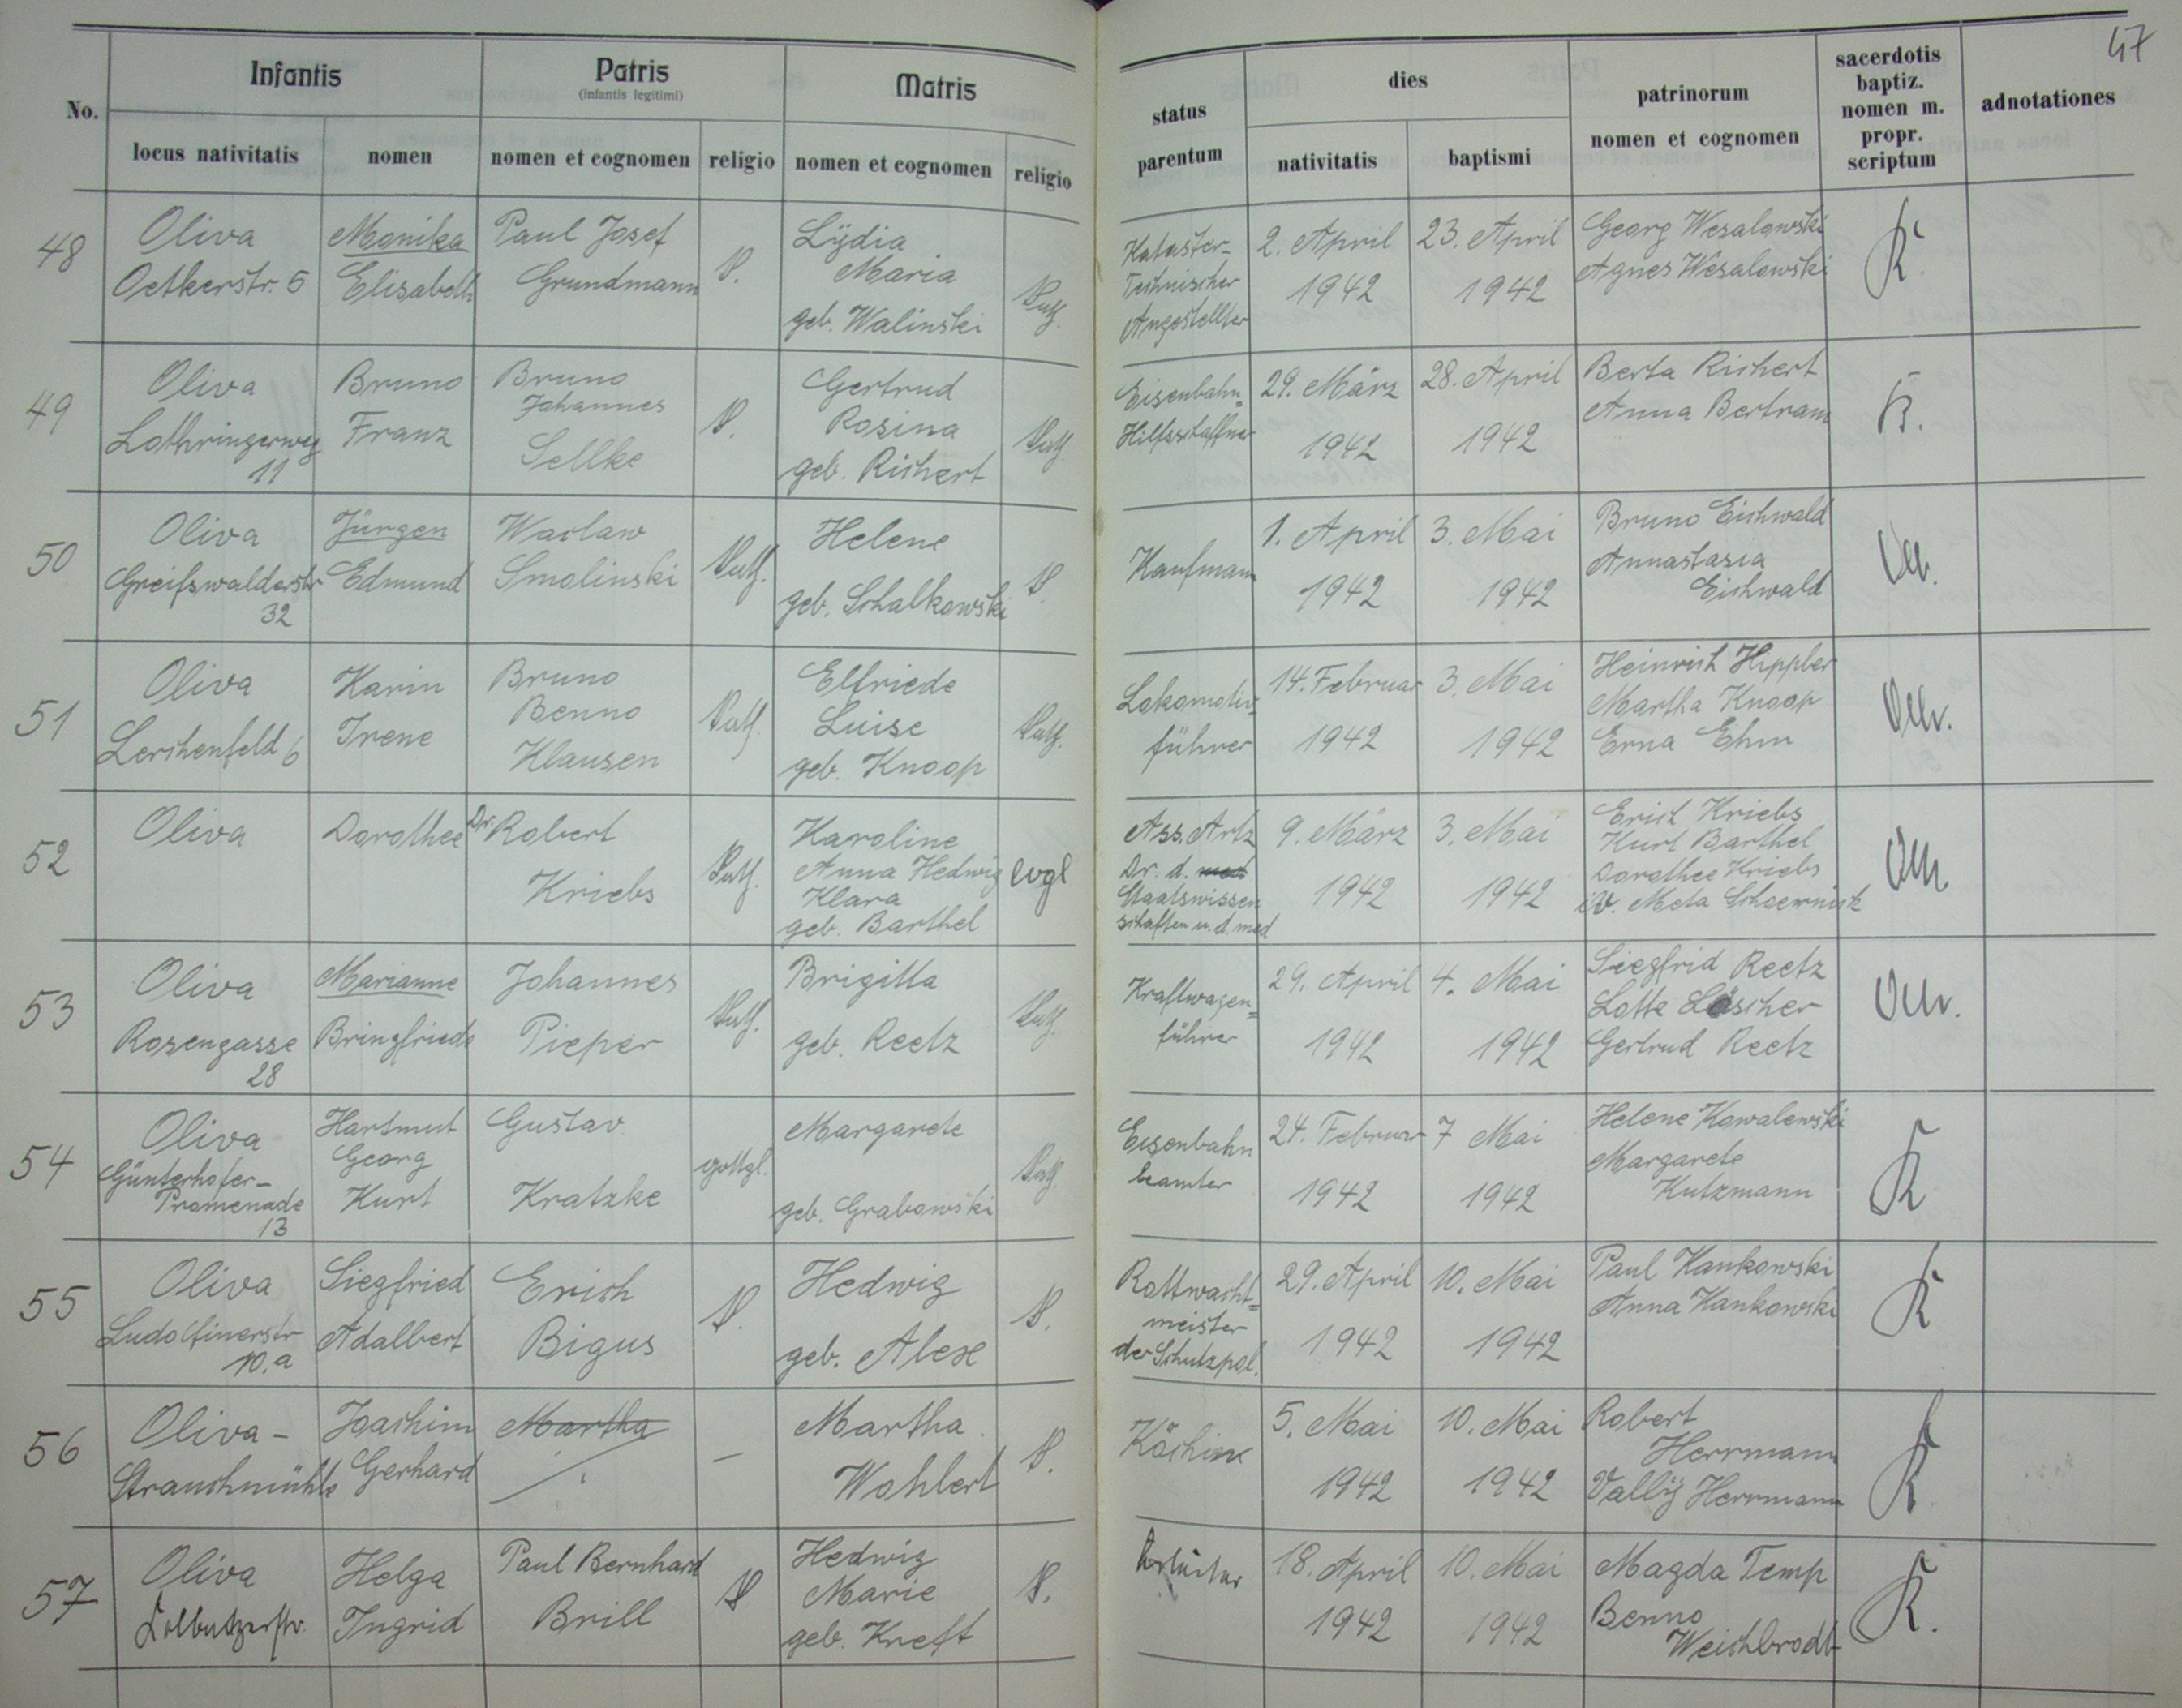 47
No.
Infantis
Patris
(infantis legitimi)
Matris
status
parentum
dies
patrinorum
nomen et cognomen
sacerdotis
baptiz.
nomen m.
propr.
scriptum
adnotationes
locus nativitatis
nomen
nomen et cognomen
religio
nomen et cognomen
religio
nativitatis
baptismi
48
Oliva
Oetkerstr. 5
Monika
Elisabeth
Paul Josef
Grundmann
Lydia
Maria
geb. Walinski
Kath.
Kataster-
Technischer
Angestellter
2. April
1942
23. April
1942
Georg Wesalowski
Agnes Wesalowski
K.
49
Oliva
Lothringerweg
11
Bruno
Franz
Bruno
Johannes
Sellke
Gertrud
Rosina
geb. Richert
Kath.
Eisenbahn-
Hilfsschaffner
29. März
1942
28. April
1942
Berta Richert
Anna Bertram
K.
50
Oliva
Greifswalderstr
32
Jürgen
Edmund
Waclaw
Smolinski
Kath.
Helene
geb. Schalkowski
Kaufmann
1. April
1942
3. Mai
1942
Bruno Eichwald
Annastasia
Eichwald
51
Oliva
Lerchenfeld 6
Karin
Irene
Bruno
Benno
Klausen
Kath.
Elfriede
Luise
geb. Knoop
Kath.
Lokomotiv-
führer
14. Februar
1942
3. Mai
1942
Heinrich Hippler
Martha Knoop
Erna Ehm
52
Oliva
Dorothee
Dr. Robert
Kriebs
Kath.
Karoline
Anna Hedwig
Klara
geb. Barthel
evgl
Ass. Artz
Dr. d. med
Staatswissen
schaften u. d. med
9. März
1942
3. Mai
1942
Erich Kriebs
Kurt Barthel
Dorothee Kriebs
Meta
53
Oliva
Rosengasse
28
Marianne
Bringfriede
Johannes
Pieper
Kath.
Brigitta
geb. Reetz
Kath.
Kraftwagen=
führer
29. April
1942
4. Mai
1942
Siegfrid Reetz
Lotte Löscher
Gertrud Reetz
54
Oliva
Günterhofer-
Promenade
13
Hartmut
Georg
Kurt
Gustav
Kratzke
gottgl.
Margarete
geb. Grabowski
Kath.
Eisenbahn
beamter
24. Februar
1942
7 Mai
1942
Helene Kowalewski
Margarete
Kutzmann
K
55
Oliva
Ludolfinerstr
10.a
Siegfried
Adalbert
Erich
Bigus
Hedwig
geb. Alex
Rottwacht=
meister
der Schutzpol.
29. April
1942
10. Mai
1942
Paul Kankowski
Anna Kankowski
K
56
Oliva -
Strauchmühle
Joachim
Gerhard
Martha
–
Martha
Wohlert
Köchin
5. Mai
1942
10. Mai
1942
Robert
Herrmann
Vally Herrmann
K
57
Oliva
Helga
Ingrid
Paul Bernhard
Brill
Hedwig
Marie
geb. Kreft
Arbeiter
18. April
1942
10. Mai
1942
Magda Temp
Benno
Weichbrodt
K.